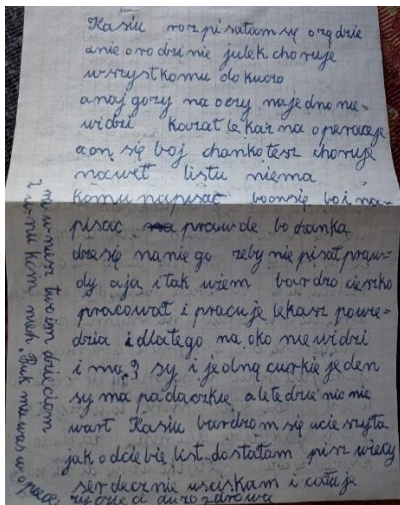 Kasiu rozpisałam się o rządzie
a nie o rodzinie julek choruje
wszystkomu dokucza
a naj gorzy na oczy na jedno nie-
widzi kazał lekaz na operacje
a on się boj chanko tesz choruje
nawet listu niema
komu napisać bo on się boi na-
pisać prawde bo chanka
drze się na niego zeby nie pisał praw-
dy a ja i tak wiem bardzo cieszko
pracował i pracuje lekasz powie-
dzia i dlatego na oko nie widzi
i ma 3 sy i jedną curkie jeden
sy ma padaczkie a te dzie nic nie
wart Kasiu bardzom się ucieszyła
jak od ciebie list dostałam pisz wiency
serdecznie usciskam i całuje
zycze ci duzo zdrowia
twoim dzieciom
i wnukom niech Buk ma was w opiece